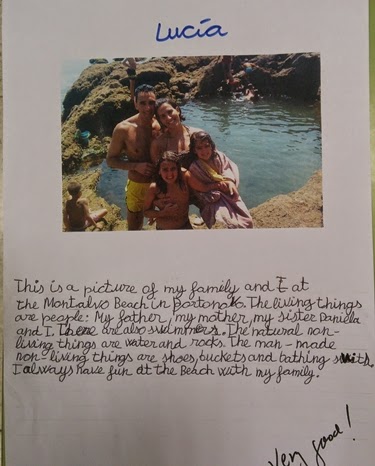 Lucía
This is a picture of my family and I at
the Montalvo Beach in Portonovo. The living things
are people: My father, my mother, my sister Daniela
and I. There are also swimmers. The natural non-
living things are water and rocks. The man-made
non living things are shoes, buckets and bathing suits.
I always have fun at the Beach with my family.
Very good!